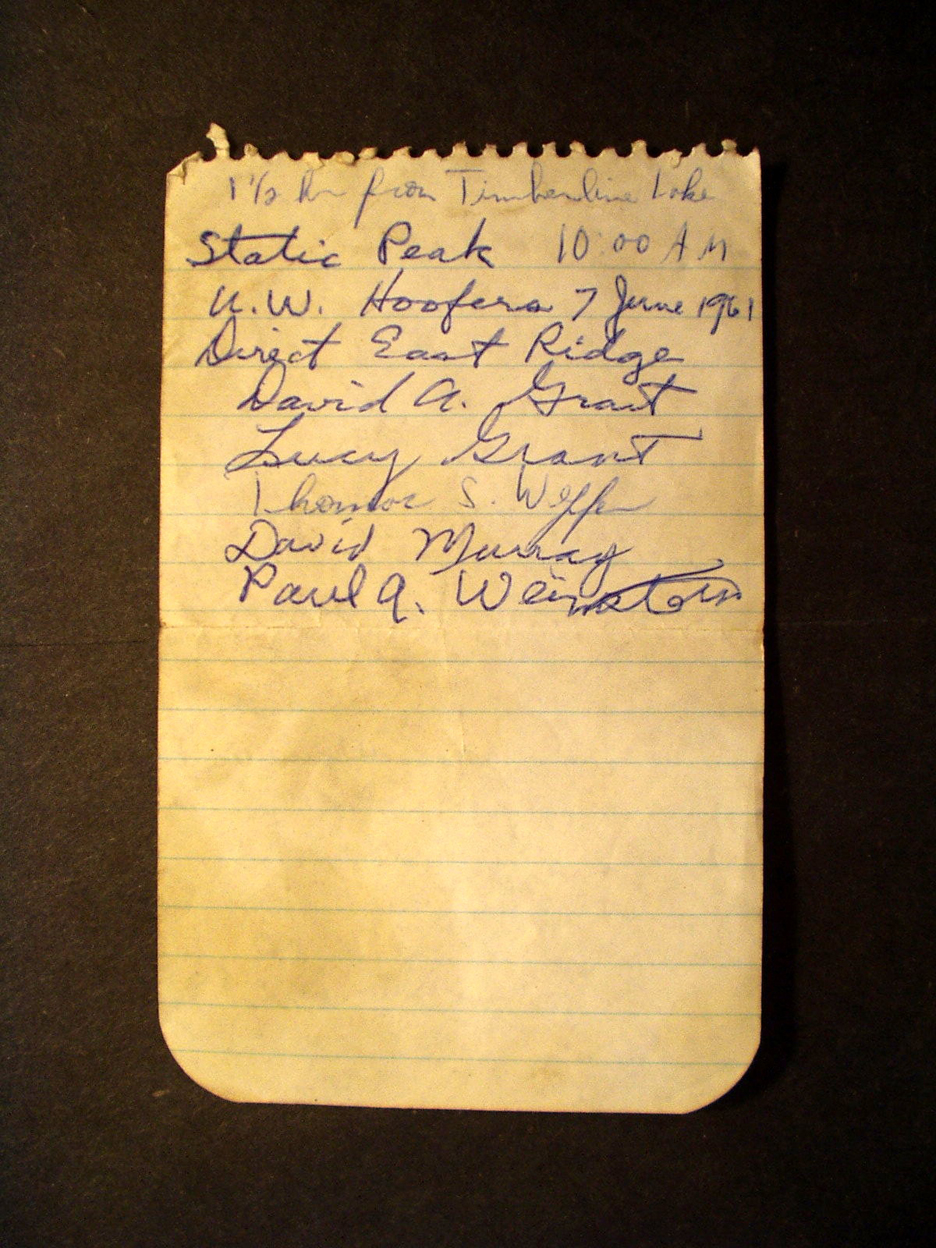 1 1/2 hr from Timberline Lake
Static Peak 10:00 AM
U.W. Hoofers 7 June 1961
Direct East Ridge
David A. Grant
Lucy Grant
Thomas S.
David Murray
Paul A. Weinstein